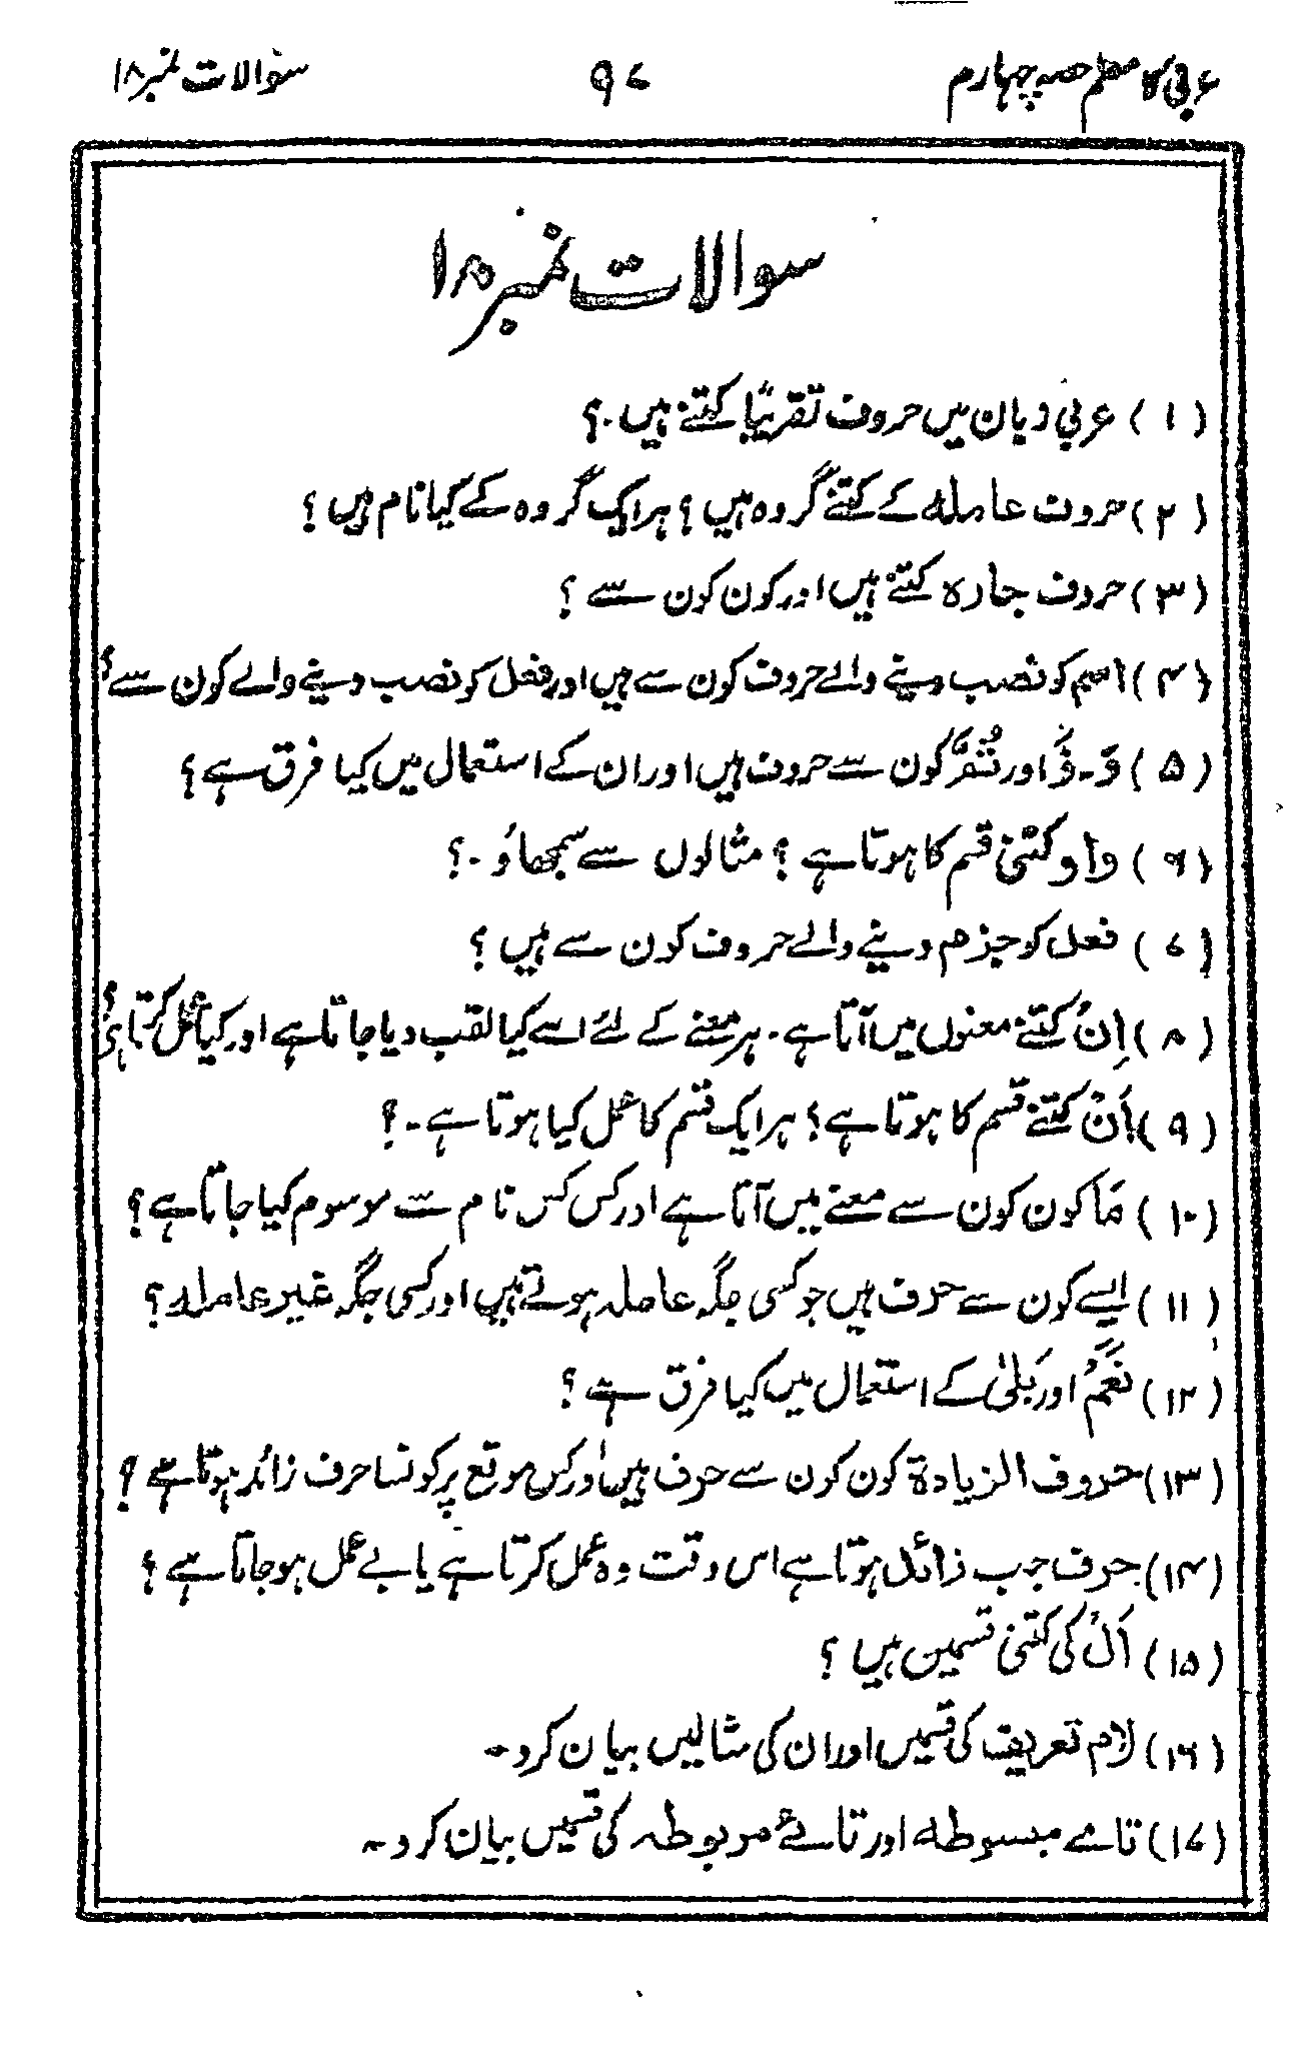 عربی کا معلم حصہ چہارم ۹۷ سوالات نمبر ۱۸
سوالات نمبر ۱۸
(۱) عربی زبان میں حروف تقریبًا کتنے ہیں۔؟
(۲) حروف عاملہ کے کتنے گروہ ہیں؟ ہر ایک گروہ کے کیا نام ہیں؟
(۳) حروف جارہ کتنے ہیں اور کون کون سے؟
(۴) اسم کو نصب دینے والے حروف کون سے ہیں اور فعل کو نصب دینے والے کون سے؟
(۵) وَ۔ فَ اور ثُمَّ کون سے حروف ہیں اور ان کے استعمال میں کیا فرق ہے؟
(۶) واو کتنی قسم کا ہوتا ہے؟ مثالوں سے سمجھاؤ۔؟
(۷) فعل کو جزم دینے والے حروف کون سے ہیں؟
(۸) اِنْ کتنے معنوں میں آتا ہے۔ ہر معنے کے لئے اسے کیا لقب دیا جاتا ہے اور کیا عمل کرتا ہی؟
(۹) اَنْ کتنے قسم کا ہوتا ہے؟ ہر ایک قسم کا عمل کیا ہوتا ہے۔؟
(۱۰) مَا کون کون سے معنے میں آتا ہے اور کس کس نام سے موسوم کیا جاتا ہے؟
(۱۱) ایسے کون سے حرف ہیں جو کسی جگہ عاملہ ہوتے ہیں اور کسی جگہ غیر عاملہ؟
(۱۲) نَعَمْ اور بَلیٰ کے استعمال میں کیا فرق ہے؟
(۱۳) حروف الزیادة کون کون سے حرف ہیں اور کس موقع پر کونسا حرف زائد ہوتا ہے؟
(۱۴) حرف جب زائد ہوتا ہے اس وقت وہ عمل کرتا ہے یا بے عمل ہوجاتا ہے؟
(۱۵) اَلْ کی کتنی قسمین ہیں؟
(۱۶) لام تعریف کی قسمیں اور ان کی مثالیں بیان کرو۔
(۱۷) تاے مبسوطہ اور تائے مربوطہ کی قسمیں بیان کرو۔